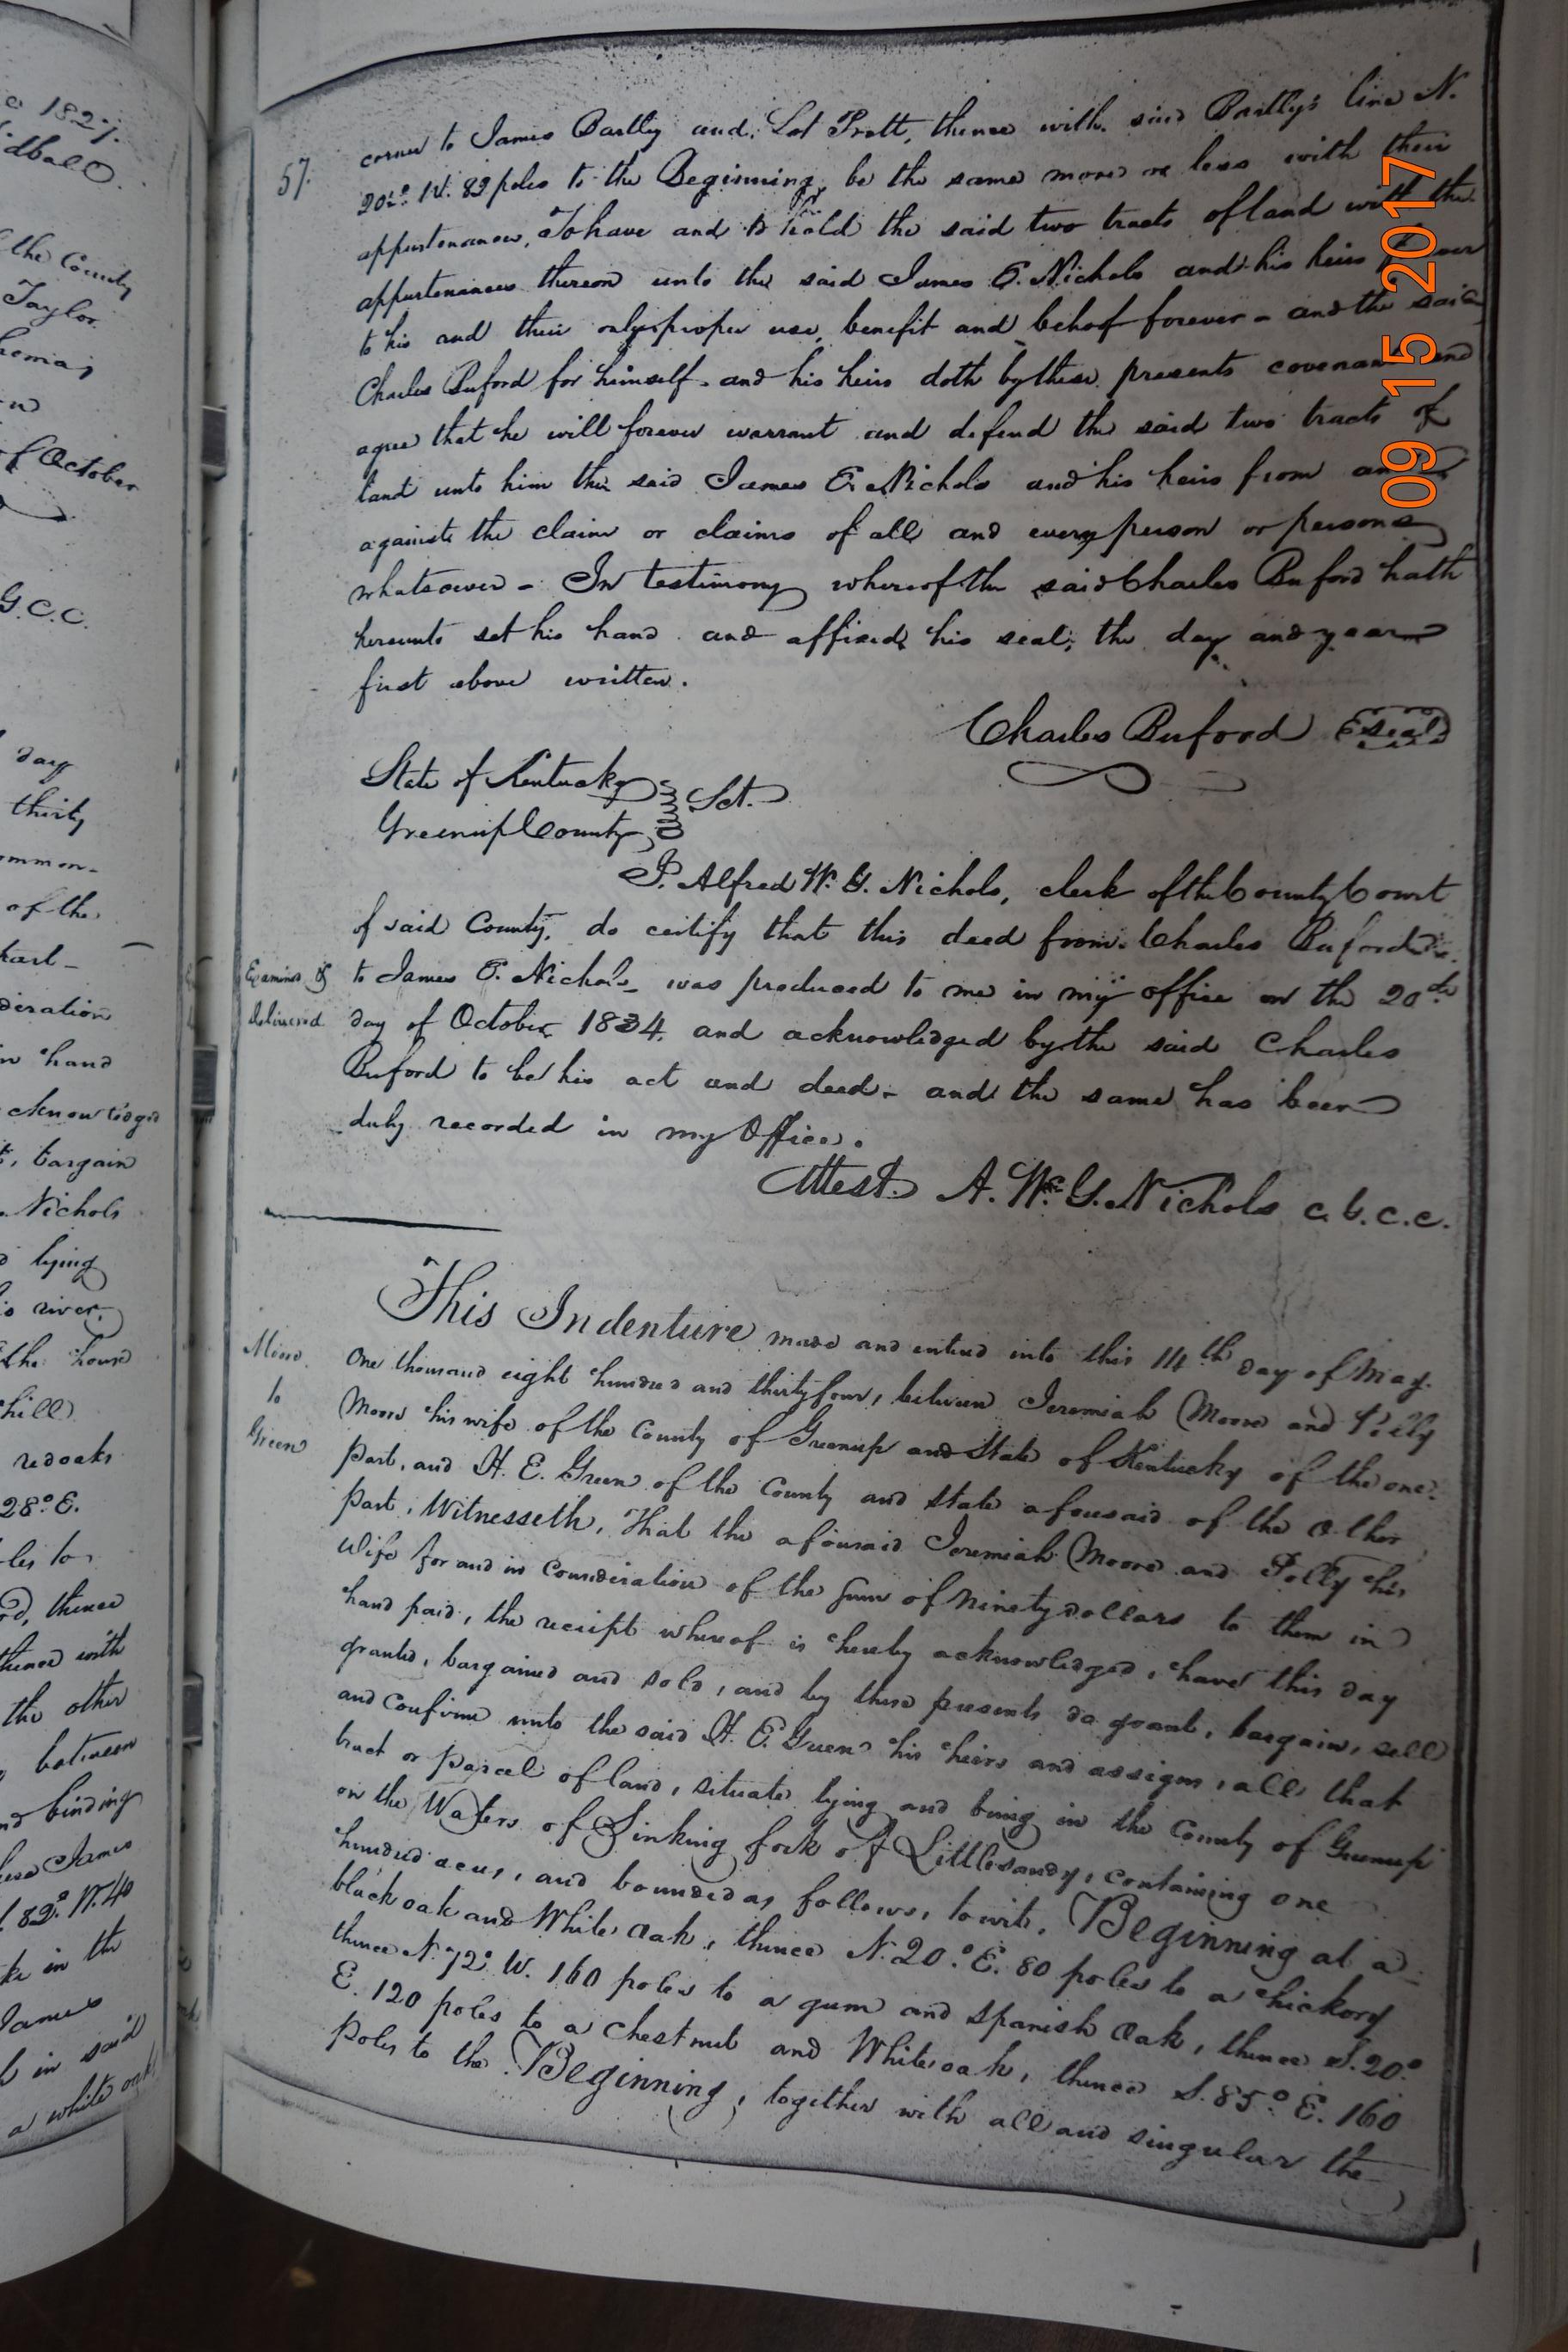 a 1827.
the County
Taylor
of October
G.C.C.
day
thirty
ommon-
of the
hart-
deration
in hand
cknowledged
t, bargain
Nichols
lying
river,
the house
hill
redoaks
28° E.
les to
thence
thence with
the other
between
nd binding
James
82° W. 40
in the
James
in said
a white oak
57.
corner to James Bartley and Lot Pratt, thence with said Bartley's line N.
20½° W. 89 poles to the Beginning, be the same more or less with their
appurtenances, To have and to hold the said two tracts of land with the
appurtenances thereon unto the said James E. Nichols and his heirs forever
to his and their only proper use, benefit and behoof forever - and the said
Charles Buford for himself and his heirs doth by these presents covenant and
agree that he will forever warrant and defend the said two tracts of
land unto him the said James E. Nichols and his heirs from and
against the claim or claims of all and every person or persons
whatsoever - In testimony whereof the said Charles Buford hath
hereunto set his hand and affixed his seal, the day and year
first above written.
Charles Buford Seal
State of Kentucky
Greenup County Sct.
I. Alfred W. G. Nichols, clerk of the County Court
of said County, do certify that this deed from Charles Buford
Examined &
delivered
to James E. Nichols was produced to me in my office on the 20th
day of October 1834, and acknowledged by the said Charles
Buford to be his act and deed - and the same has been
duly recorded in my Office.
Attest. A. W. G. Nichols c.G.c.c.
Moore
to
Green
This Indenture made and entered into this 14th day of May.
One thousand eight hundred and thirty four, between Jeremiah Moore and Polly
Moore his wife of the County of Greenup and State of Kentucky of the one
part, and H. E. Green of the County and state aforesaid of the other
part, Witnesseth, That the aforesaid Jeremiah Moore and Polly his
Wife for and in Consideration of the Sum of Ninety dollars to them in
hand paid, the receipt whereof is hereby acknowledged, have this day
granted, bargained and sold, and by these presents do grant, bargain, sell
and Confirm unto the said H. E. Green his heirs and assigns, all that
tract or parcel of land, situate lying and being in the County of Greenup
on the Waters of Sinking fork of Littlesandy, containing one
hundred acres, and bounded as follows, towit, Beginning at a
black oak and White Oak, thence N. 20° E. 80 poles to a hickory
thence N. 72° W. 160 poles to a gum and spanish Oak, thence S. 20°
E. 120 poles to a Chestnut and White oak, thence S. 85° E. 160
Poles to the Beginning, together with all and singular the
09 15 2017